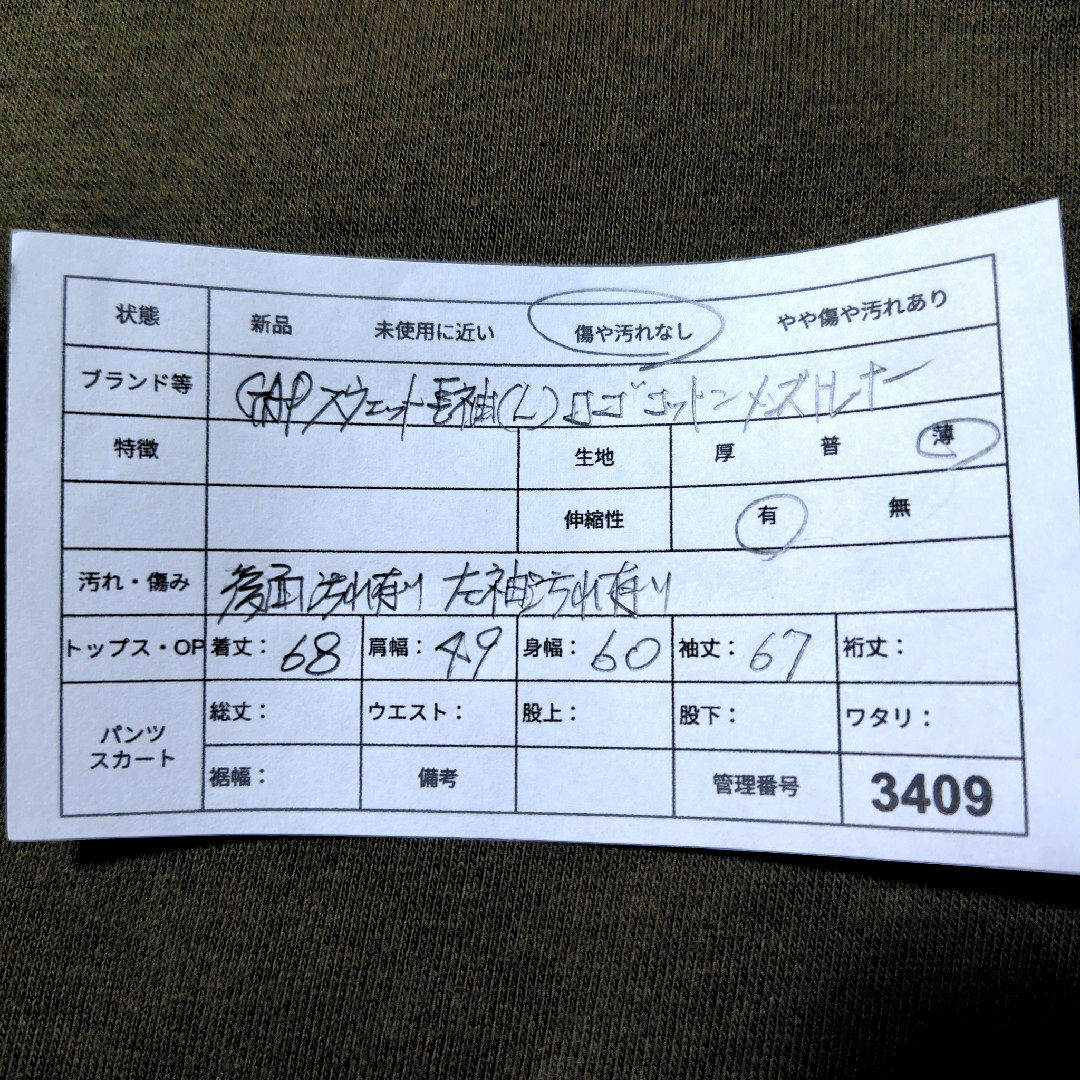 状態 新品 未使用に近い 傷や汚れなし やや傷や汚れあり
ブランド等 GAP スウェット 長袖(L) ロゴ コットン メンズ トレーナー
特徴 生地 厚 普 薄
伸縮性 有 無
汚れ・傷み 後面汚れ有り 左袖汚れ有り
トップス・OP 着丈: 68 肩幅: 49 身幅: 60 袖丈: 67 裄丈:
パンツ スカート 総丈: ウエスト: 股上: 股下: ワタリ:
裾幅: 備考 管理番号 3409